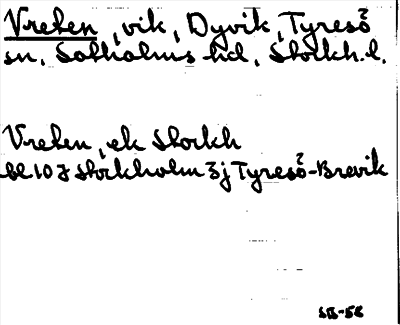 Vreten, vik, Dyvik, Tyresö
sn, Sotholms hd, Stockh. l.
Vreten, ek Stockh
bl 10 J Stockholm 3j Tyresö-Brevik